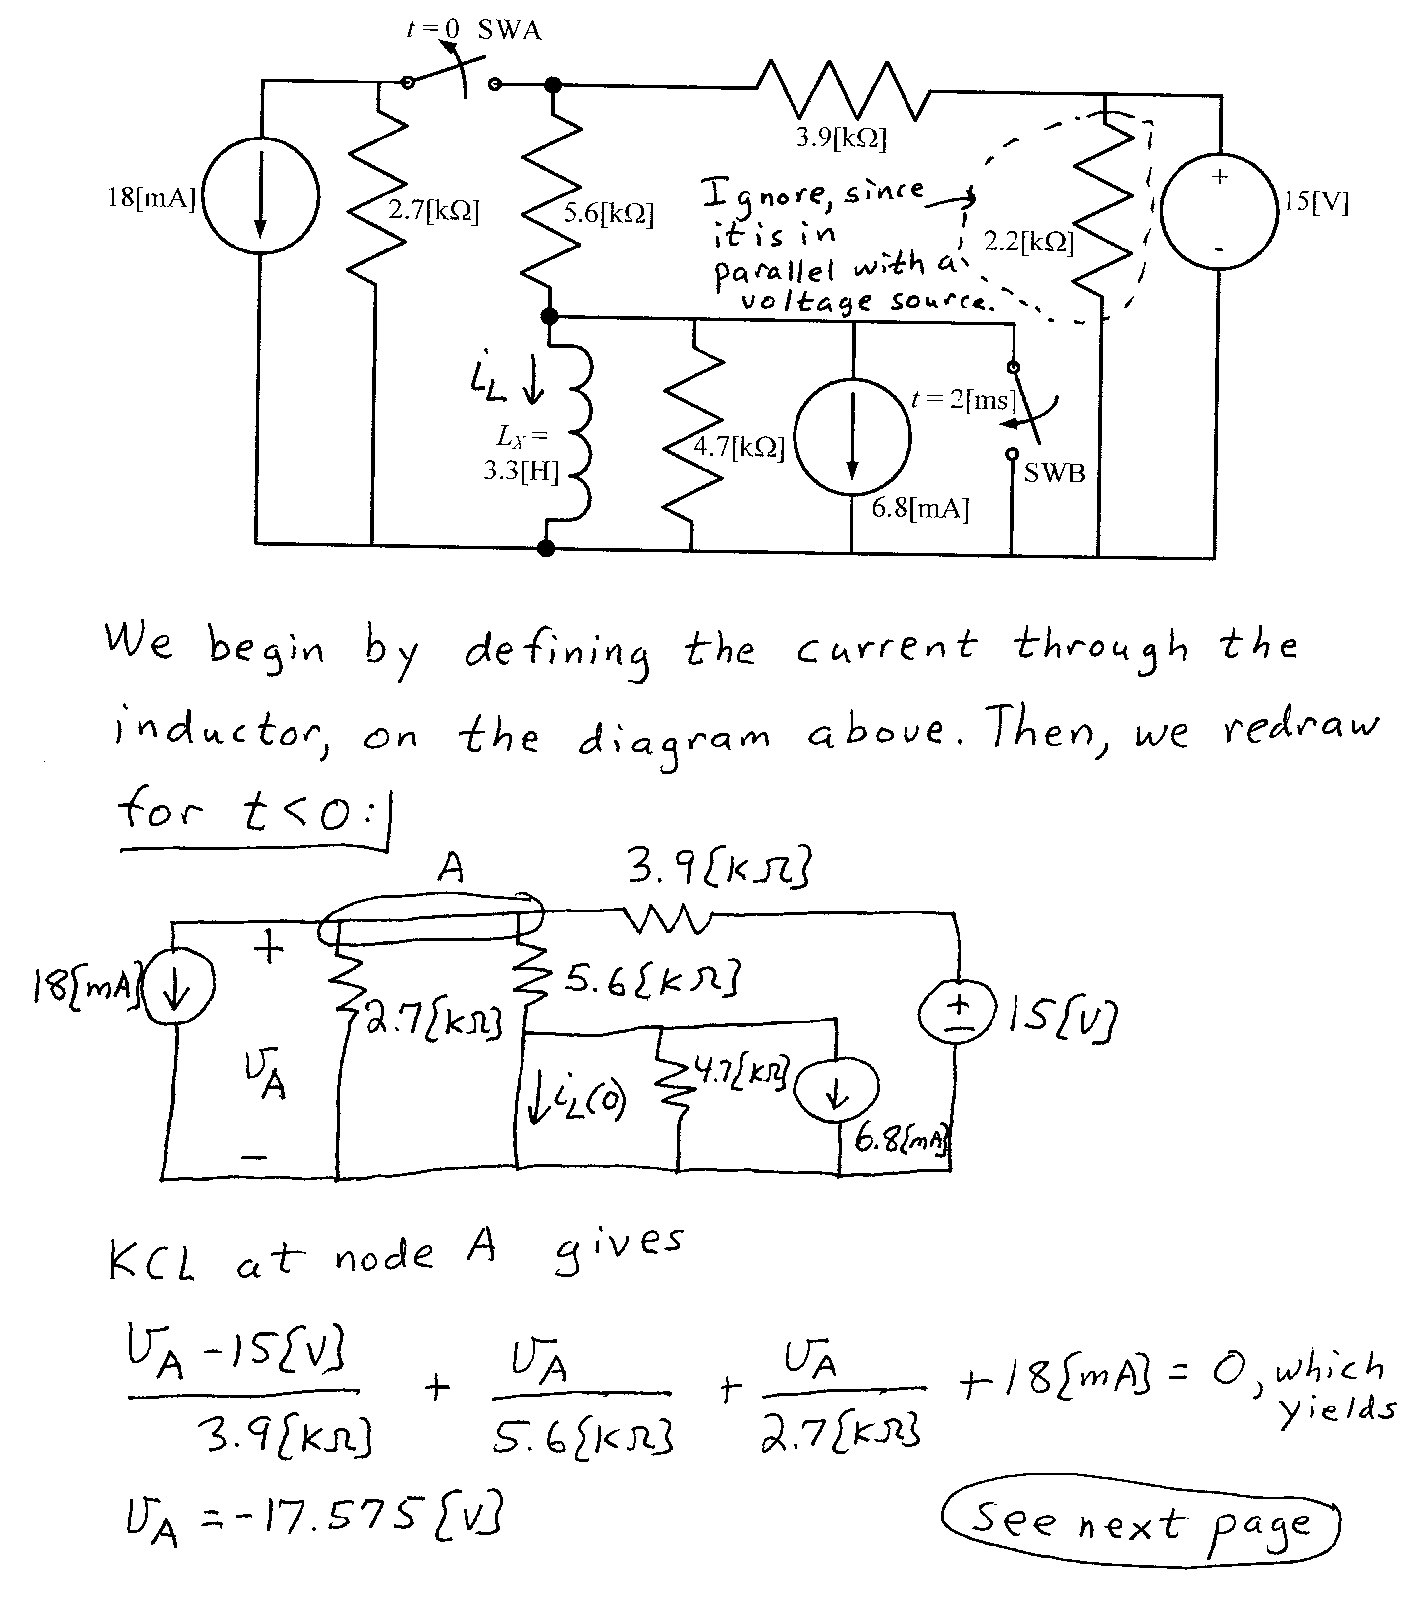 t = 0 SWA
3.9[kΩ]
18[mA]
2.7[kΩ]
5.6[kΩ]
Ignore, since
it is in
parallel with a
voltage source.
2.2[kΩ]
+
-
15[V]
iL
LX =
3.3[H]
4.7[kΩ]
6.8[mA]
t = 2[ms]
SWB
We begin by defining the current through the
inductor, on the diagram above. Then, we redraw
for t<0:
A
3.9[kΩ]
18[mA]
+
vA
-
2.7[kΩ]
5.6[kΩ]
iL(0)
4.7[kΩ]
6.8[mA]
+
-
15[V]
KCL at node A gives
vA -15[V] / 3.9[kΩ] + vA / 5.6[kΩ] + vA / 2.7[kΩ] + 18[mA] = 0, which
yields
vA = -17.575[V]
See next page